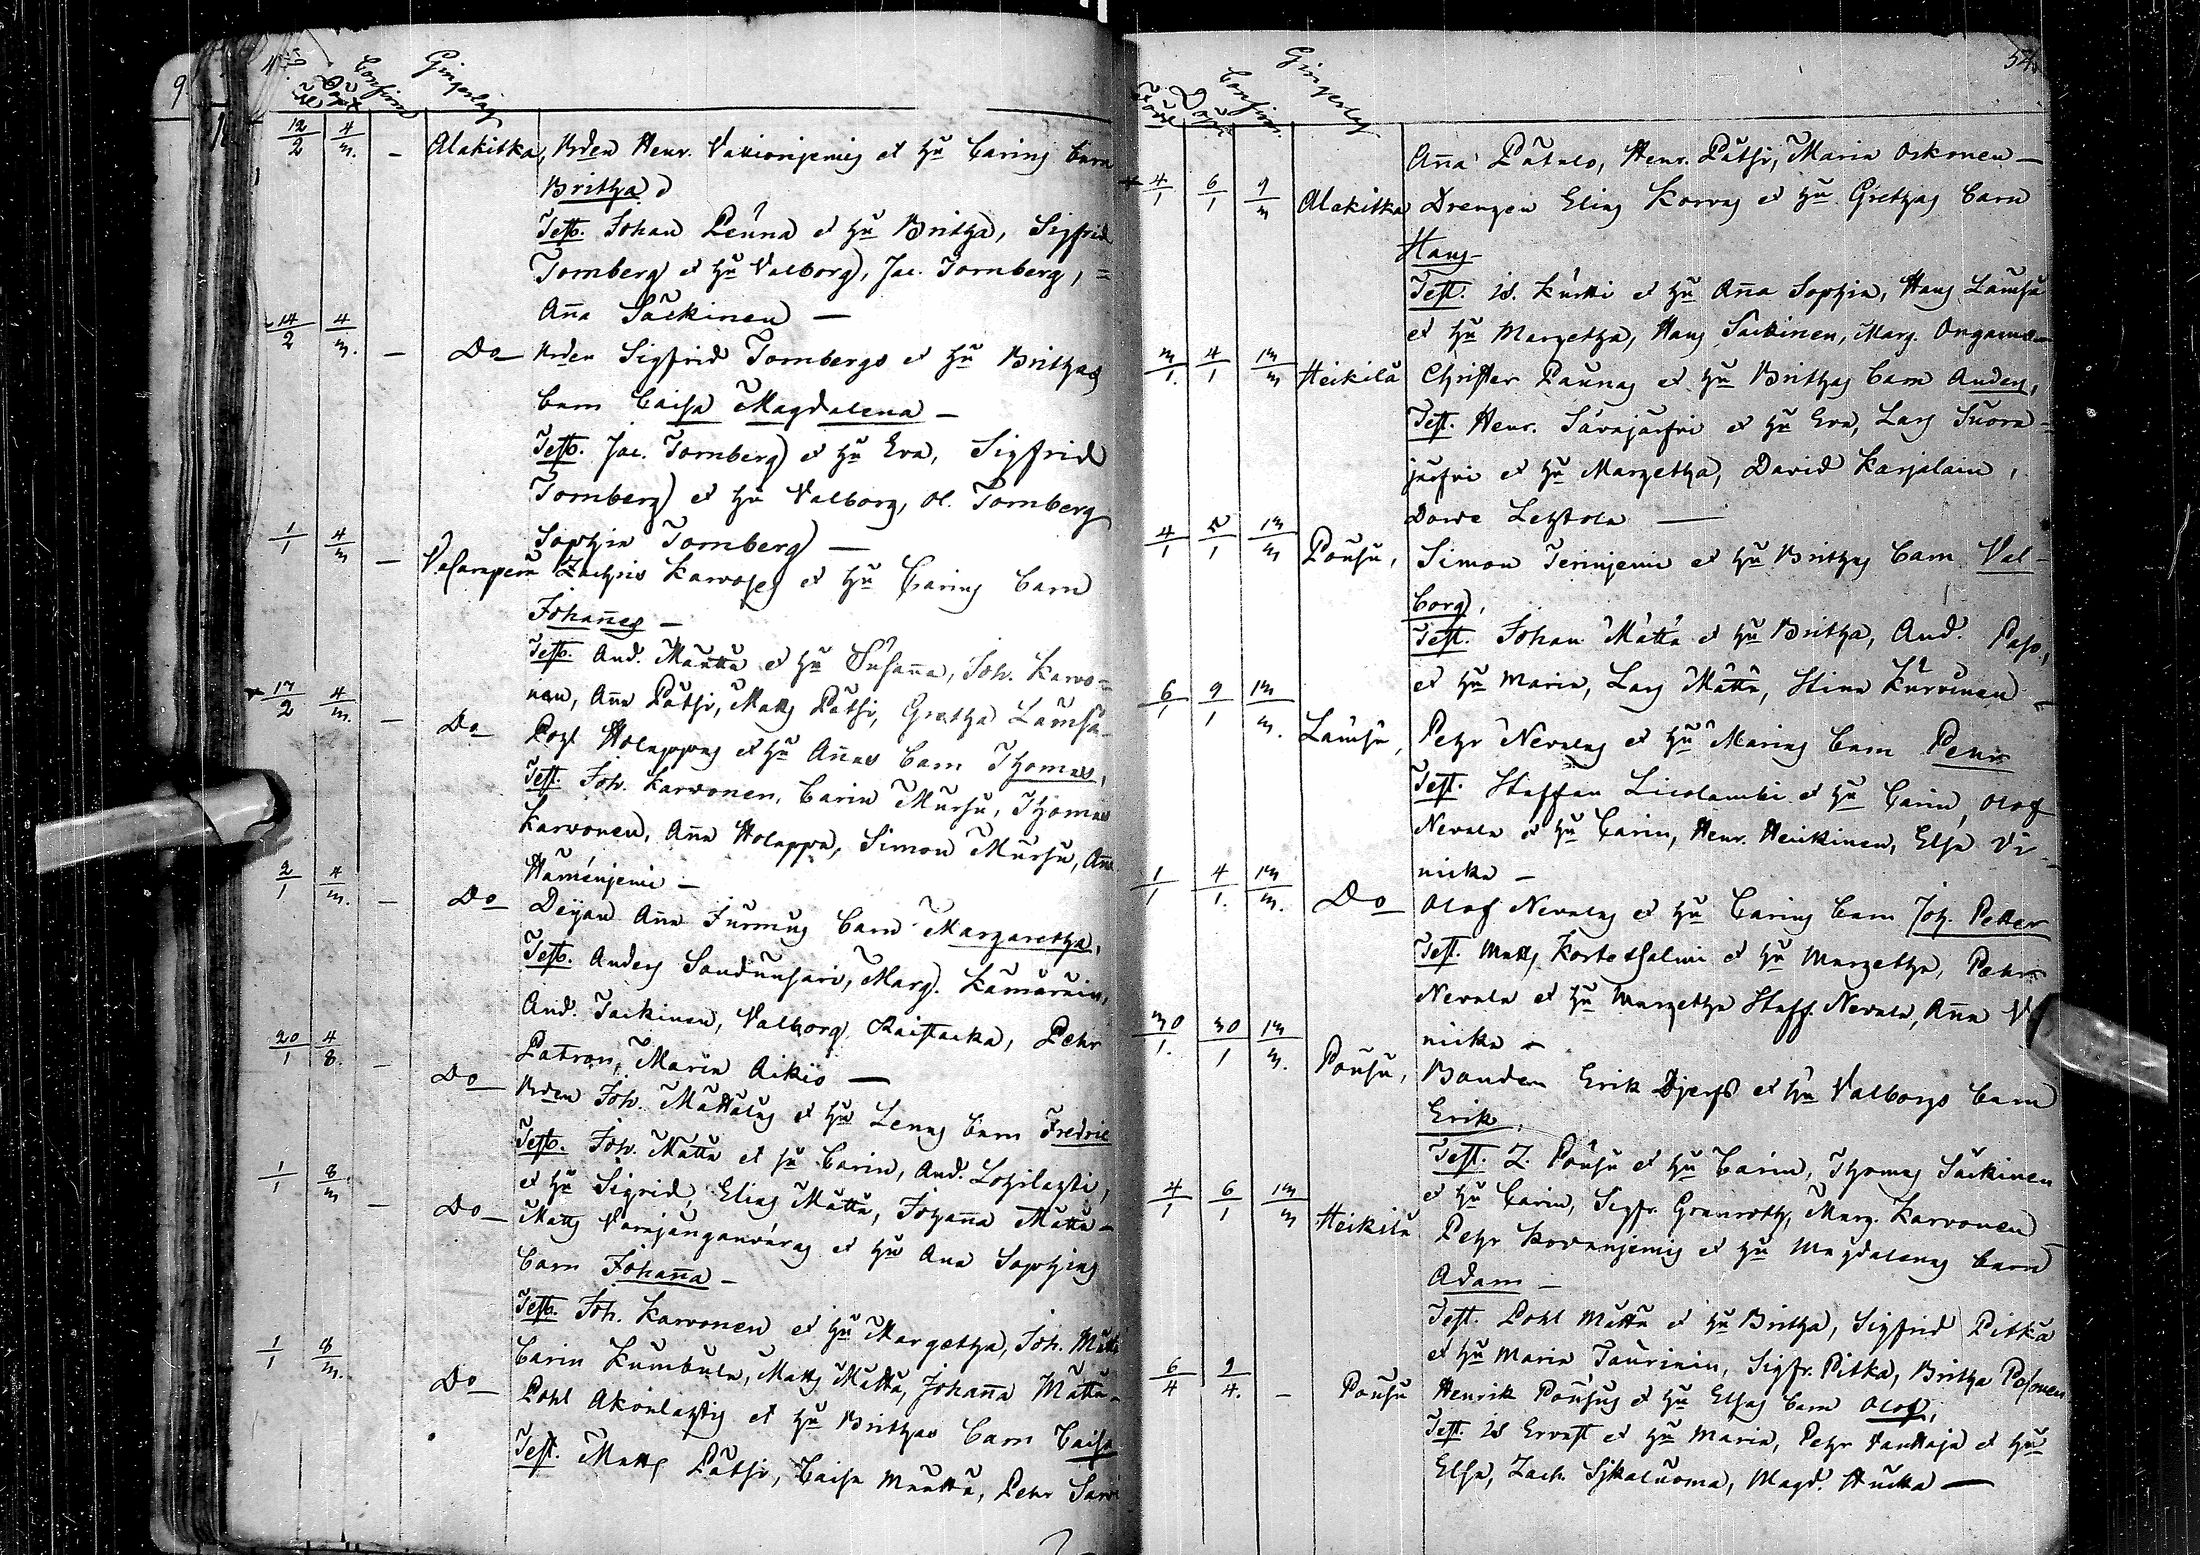 9
54.
Döpt Confirm Gingerläg
12/2 4/3. – Alakitka, Brden Henr. Vallioinjemis et Hu Carins barn
Britha
Test. Johan Penna et Hu Britha, Sigfrid
Tornberg et Hu Valborg, Jac. Tornberg, =
Aña Säckinen —
14/2 4/3. – Do Brden Sigfrid Tornbergs et Hu Brithas
barn Caisa Magdalena —
Test. Jac. Tornberg et Hu Eva, Sigfrid
Tornberg et Hu Valborg, Ol. Tornberg
Sophia Tornberg —
1/1 4/3 – Vasaraperä Zachris Karvoses et Hu Carins barn
Johañes —
Test. And. Määttä et Hu Susaña, Joh. Karvo=
nen, Aña Pätsi, Matts Pätsi, Gretha Lämsä
17/2 4/3. – Do Pohl Holappas et Hu Añas barn Thomas,
Test. Joh. Karvonen, Carin Mursu, Thomas
Karvonen, Aña Holappa, Simon Mursu, Aña
Hämenjemi —
2/1 4/3. – Do Deÿan Aña Jurmus barn Margaretha,
Test. Anders Soudunsari, Marg. Kämäräin,
And. Säckinen, Valborg Raistacka, Pehr
Patron, Maria Aikio —
20/1 4/8. – Do Brden Joh. Määttäs et Hu Lenas barn Fredric
Test. Joh. Mätta et Hu Carin, And. Lohilahti,
et Hu Sigrid, Elias Mätta, Johaña Mätta —
1/1 8/3 – Do Matts Varajänganvaras et Hu Ana Sophias
barn Johaña —
Test. Joh. Karvonen et Hu Margetha, Joh. Mätta
Carin Kumbula, Matts Mätta, Johaña Mätta —
1/1 8/3. Do Pohl Akonlahtis et Hu Brithas barn Caisa
Test. Matts Pätsi, Caisa Määttä, Pehr Sarvi
Född Döpt Confirm. Gingerläg
Aña Pätsi, Henr. Pätsi, Maria Oskonen —
4/1 6/1 9/3 Alakitka Drengen Elias Korvas et Hu Grethas barn
Hans —
Test. Is. Kurtti et Hu Aña Sophia, Hans Lämsä
et Hu Margetha, Hans Säckinen, Marg. Ongamo
3/1. 4/1 13/3 Heikilä Christer Paunas et Hu Brithas barn Anders,
Test. Henr. Säväjärfvi et Hu Eva, Lars Suora=
järfvi et Hu Margetha, David Karjalain,
Dowe Lehtola —
4/1 5/1 13/3 Pousu, Simon Terinjemi et Hu Brithas barn Val=
borg,
Test. Johan Mätta et Hu Britha, And. Paso,
et Hu Maria, Lars Mätta, Stina Kurvinen —
6/1 9/1 13/3. Lämsä, Pehr Nevalas et Hu Marias barn Pehr
Test. Staffan Livolambi et Hu Carin, Olof
Nevala et Hu Carin, Henr. Heikinen, Elsa Vi=
nicka —
1/1 4/1. 13/3. Do Olof Nevalas et Hu Carins barn Joh. Petter
Test. Matts Kortesalmi et Hu Margetha, Pehr
Nevala et Hu Margetha Staff. Nevala, Aña Vi
nicka —
30/1. 30/1 13/3. Pousu, Bonden Erik Djerfs et Hu Valborgs barn
Erik,
Test. Z. Pousu et Hu Carin, Thomas Säckinen
et Hu Carin, Sigfr. Granroth, Marg. Karvonen
4/1 6/1 13/3 Heikilä Pehr Kovanjemis et Hu Magdalenas barn
Adam —
Test. Pohl Mätta et Hu Britha, Sigfrid Pitkä
et Hu Maria Taurinin, Sigfr. Pitkä, Britha Posonen
6/4 9/4. – Pousu Henrik Pousus et Hu Elsas barn Olof,
Test. Is Ervast et Hu Maria, Pehr Vanttaja et Hu
Elsa, Zach. Sjkaluoma, Magd. Hucka —